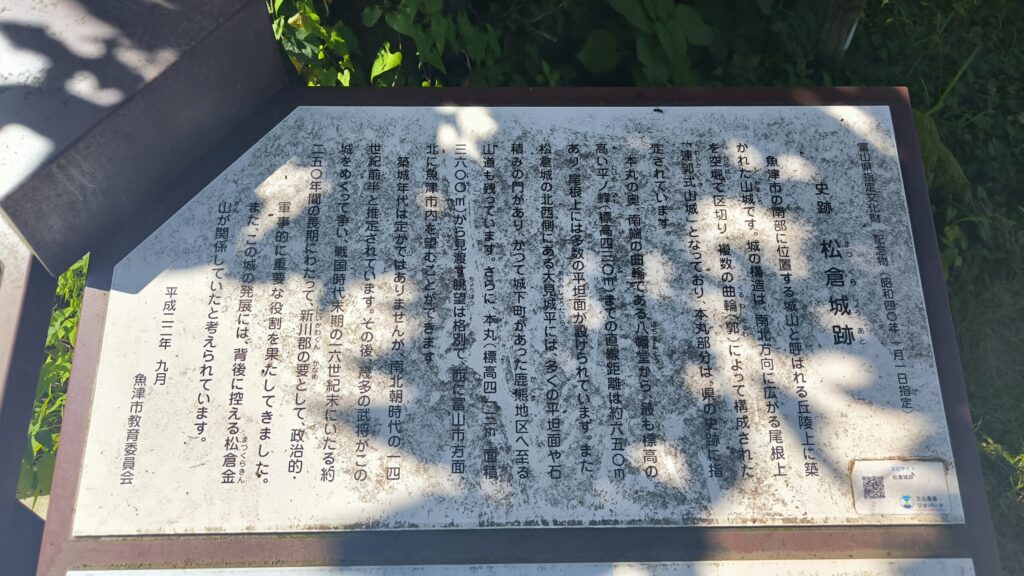 富山県指定文化財　記念物（昭和四〇年一月一日指定）
史跡　松倉城跡
魚津市の南部に位置する城山と呼ばれる丘陵上に築
かれた山城です。城の構造は、南北方向に広がる尾根上
を空堀で区切り、複数の曲輪（郭）によって構成された
「連郭式山城」となっており、本丸部分は、県の史跡に指
定されています。
本丸の奥、南端の曲輪である八幡堂から、最も標高の
高い平ノ峰（標高四三〇ｍ）までの直線距離は約六五〇ｍ
あり、尾根上には多数の平坦面が設けられています。また、
松倉城の北西側にある大見城平には、多くの平坦面や石
積みの門があり、かつて城下町があった鹿熊地区へ至る
山道も残っています。さらに、本丸（標高四一三ｍ、面積
三六〇〇㎡）から見渡す眺望は格別で、西に富山市方面、
北に魚津市内を望むことができます。
築城年代は定かではありませんが、南北朝時代の一四
世紀前半と推定されています。その後、幾多の武将がこの
城をめぐって争い、戦国時代末期の一六世紀末にいたる約
二五〇年間の長期にわたって、新川郡の要として、政治的・
軍事的に重要な役割を果たしてきました。
また、この城の発展には、背後に控える松倉金
山が関係していたと考えられています。
平成二二年　九月
魚津市教育委員会
松倉城跡
立山黒部
ジオパーク